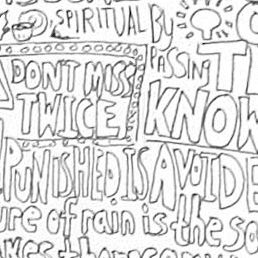 SPIRITUAL BY
PASSIN
DON'T MISS
TWICE
KNOW
PUNISHED IS AVOIDE
ure of rain is the so